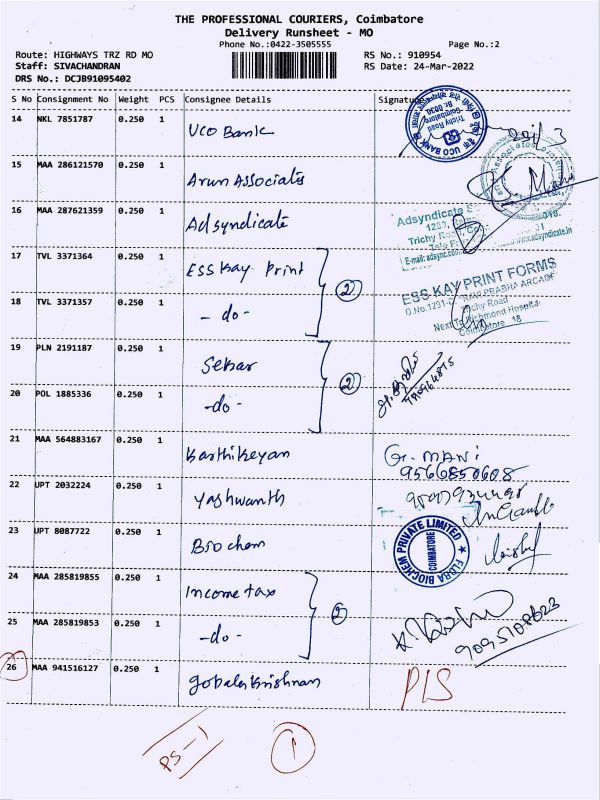 THE PROFESSIONAL COURIERS, Coimbatore
Delivery Runsheet - MO
Phone No.:0422-3505555
Page No.:2
Route: HIGHWAYS TRZ RD MO
RS No.: 910954
Staff: SIVACHANDRAN
RS Date: 24-Mar-2022
DRS No.: DCJB91095402
S No Consignment No Weight PCS Consignee Details Signature
14 NKL 7851787 0.250 1 UCO Bank
UCO BANK
Trichy Road
Coimbatore
15 MAA 286121570 0.250 1 Arun Associates
16 MAA 287621359 0.250 1 Adsyndicate
Adsyndicate
Trichy Road
17 TVL 3371364 0.250 1 ESS Kay Print
2
ESS KAY PRINT FORMS
PRABHA ARCADE
Trichy Road
Next To Richmond Hospital
Coimbatore 18
18 TVL 3371357 0.250 1 -do-
19 PLN 2191187 0.250 1 Sekar
2
20 POL 1885336 0.250 1 -do-
21 MAA 564883167 0.250 1 Karthikeyan
G. MANI
9566850608
22 UPT 2032224 0.250 1 Yashwanth
23 UPT 8087722 0.250 1 Biochem
FLORA BIOCHEM PRIVATE LIMITED
COIMBATORE
24 MAA 285819855 0.250 1 Income tax
2
25 MAA 285819853 0.250 1 -do-
9095108623
26 MAA 941516127 0.250 1 gobalakrishnan
PLS
PS-1
1